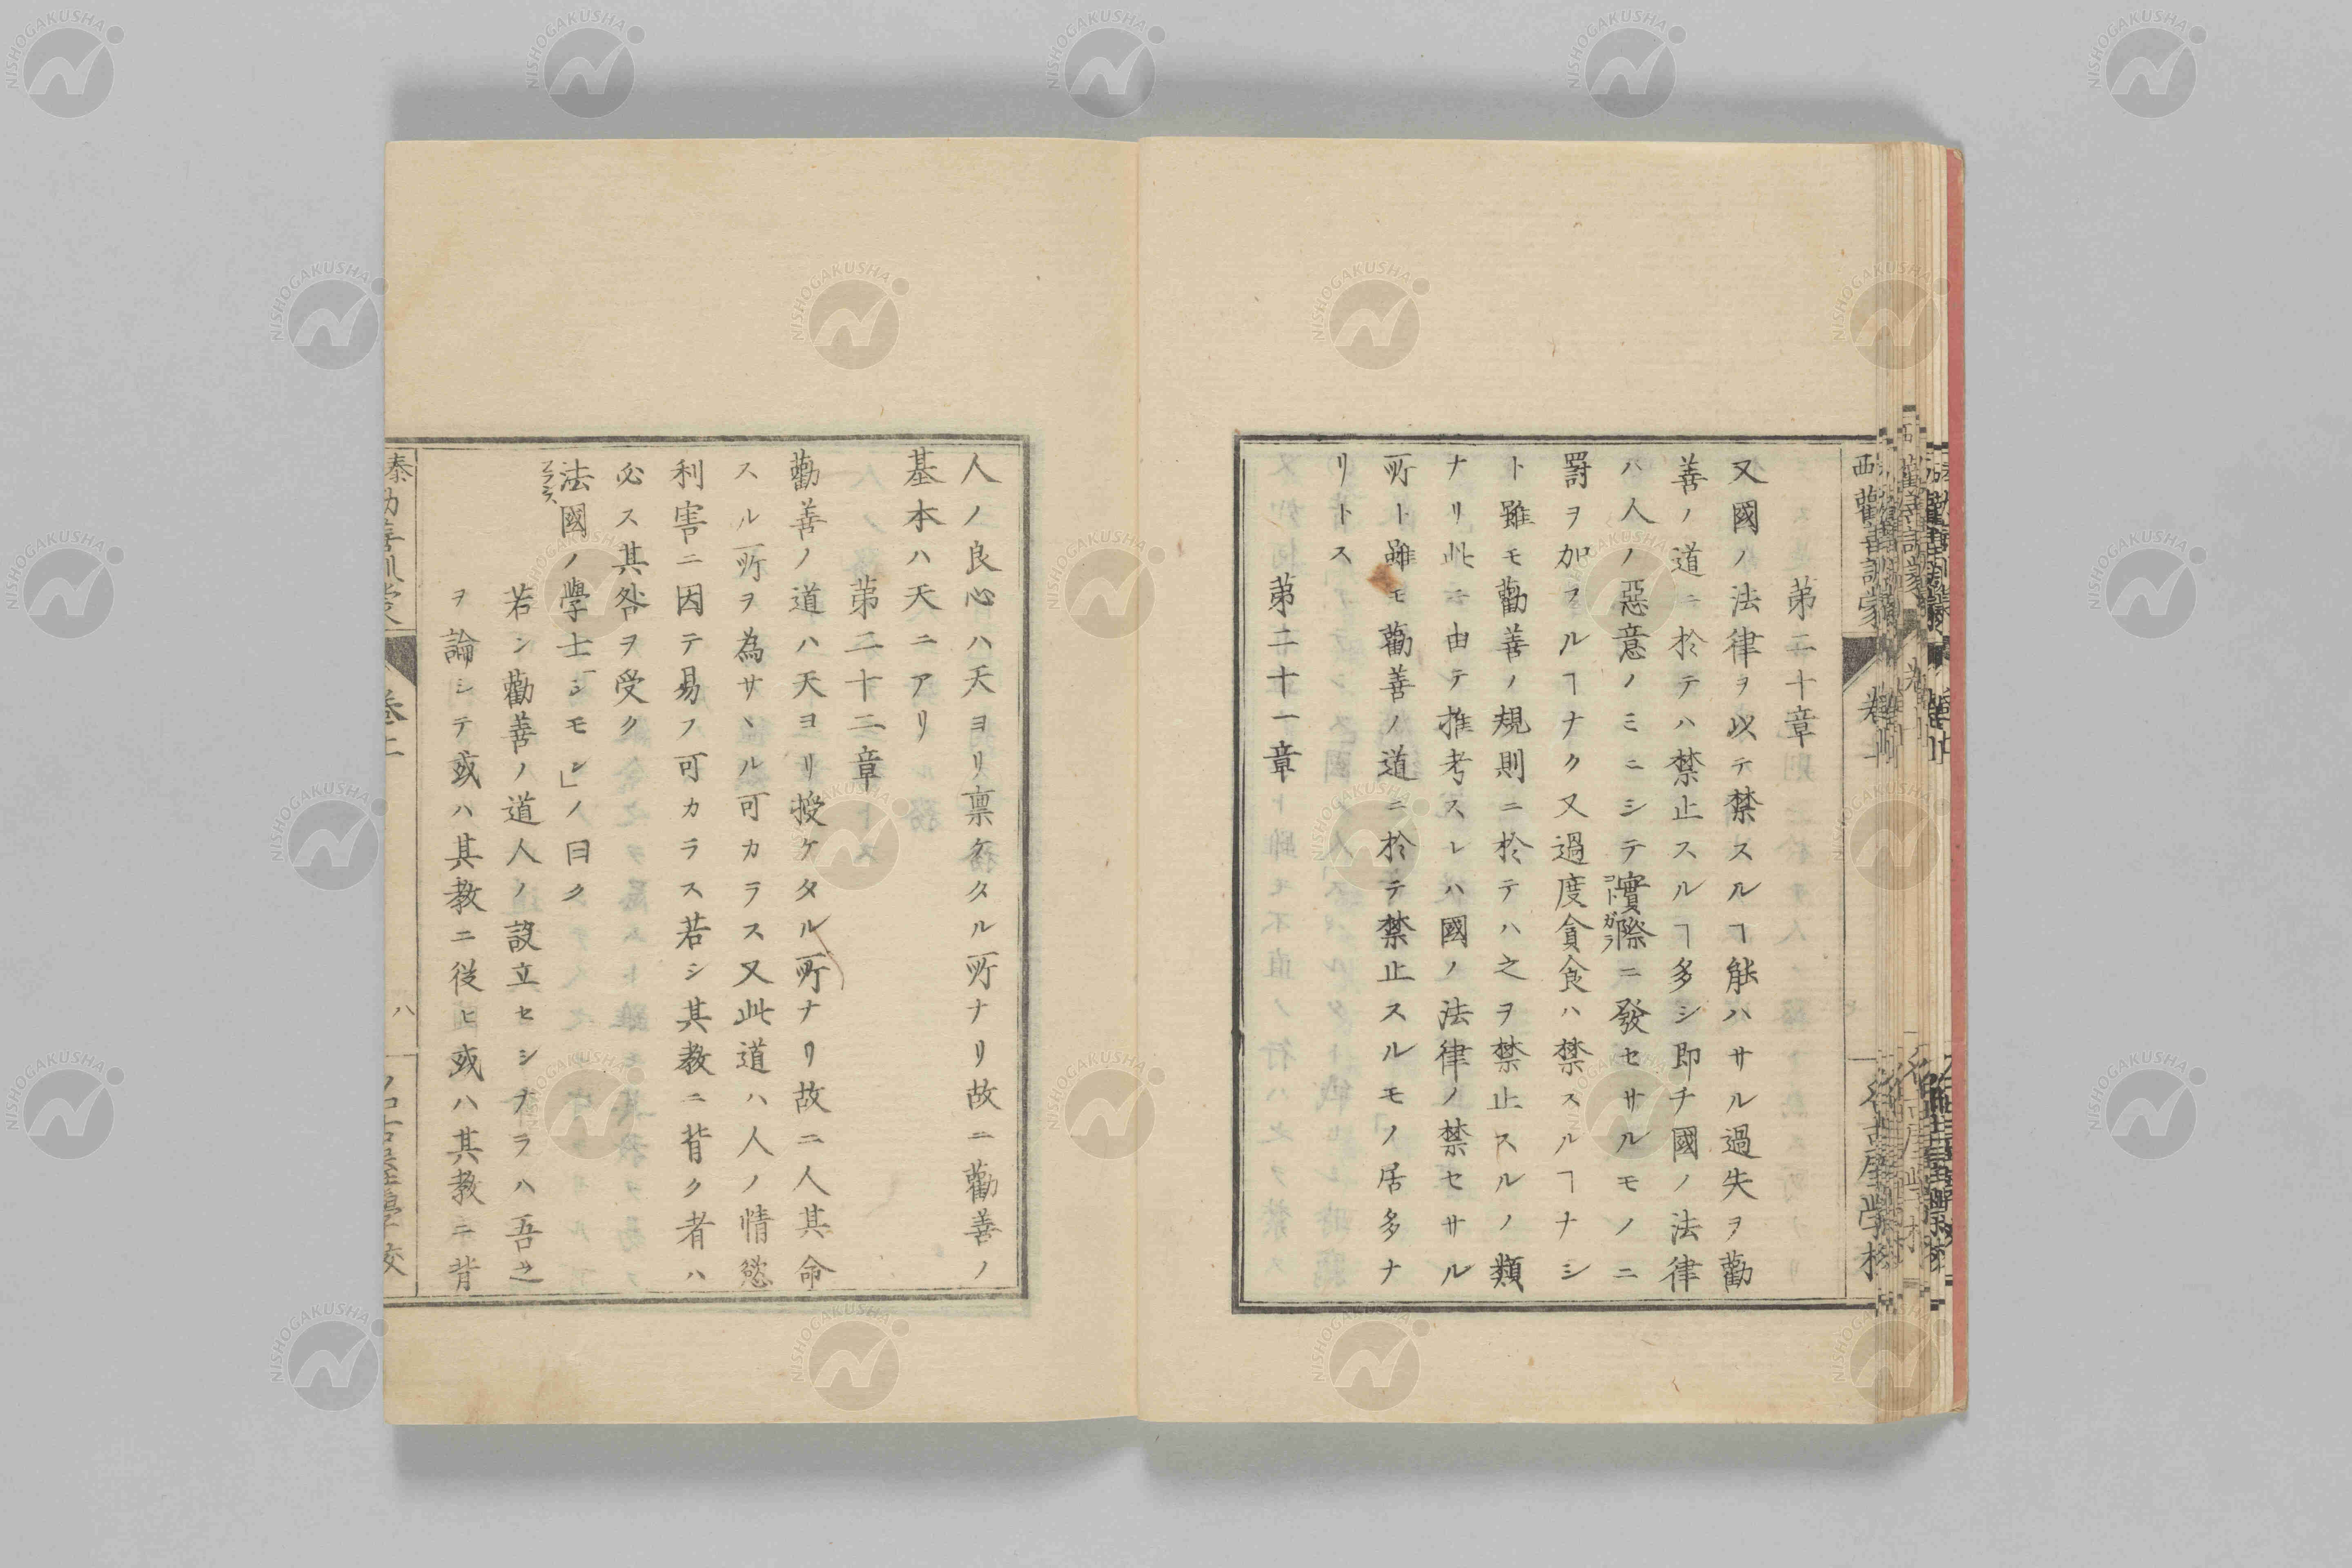 第二十章
又國ノ法律ヲ以テ禁スルヿ能ハサル過失ヲ勸
善ノ道ニ於テハ禁止スルヿ多シ即チ國ノ法律
ハ人ノ惡意ノミニシテ實際ニ發セサルモノニ
コトガラ
罸ヲ加フルヿナク又過度貪食ハ禁スルヿナシ
ト雖モ勸善ノ規則ニ於テハ之ヲ禁止スルノ類
ナリ此ニ由テ推考スレハ國ノ法律ノ禁セサル
所ト雖モ勸善ノ道ニ於テ禁止スルモノ居多ナ
リトス
第二十一章
人ノ良心ハ天ヨリ禀ケタル所ナリ故ニ勸善ノ
基本ハ天ニアリ
第二十二章
勸善ノ道ハ天ヨリ授ケタル所ナリ故ニ人其命
スル所ヲ為サヽル可カラス又此道ハ人ノ情慾
利害ニ因テ易フ可カラス若シ其教ニ背ク者ハ
必ス其咎ヲ受ク
法國ノ學士「シモン」ノ曰ク
フランス
若シ勸善ノ道人ノ設立セシナラハ吾之
ヲ論シテ或ハ其教ニ從ヒ或ハ其教ニ背
八
NISHOGAKUSHA